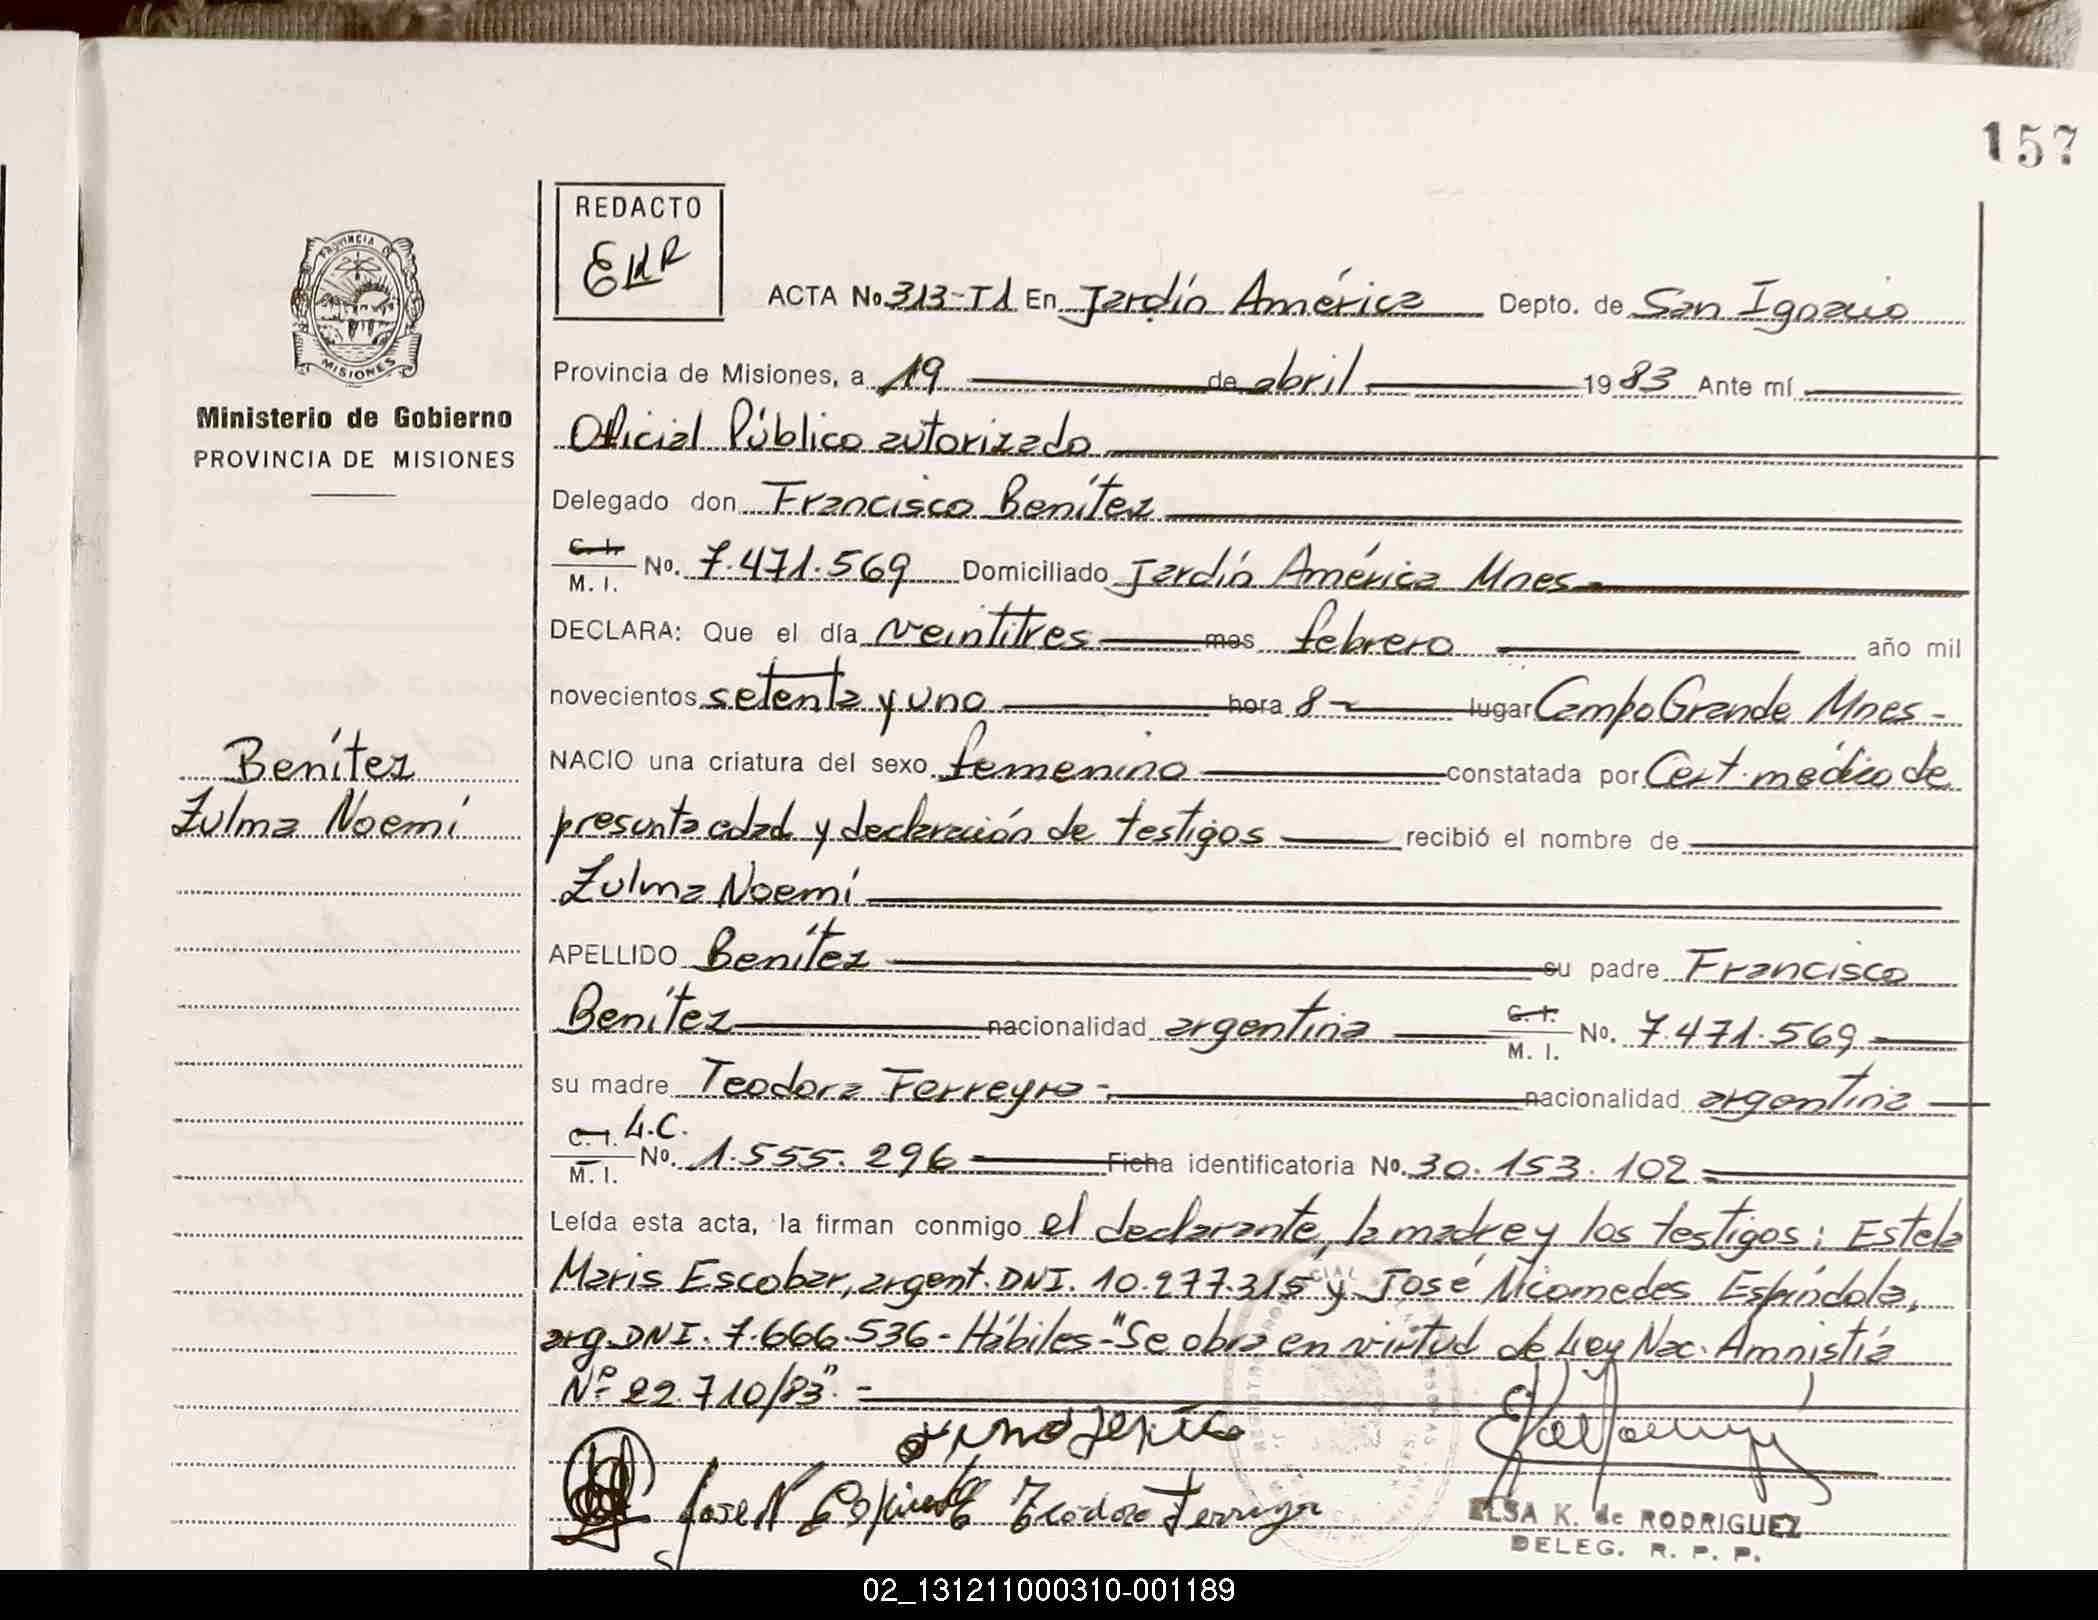 157
REDACTO
EKR
PROVINCIA DE
MISIONES
Ministerio de Gobierno
PROVINCIA DE MISIONES
Benítez
Zulma Noemí
ACTA No. 313-T1 En Jardín América Depto. de San Ignacio
Provincia de Misiones, a 19 de abril 1983 Ante mí
Oficial Público autorizado
Delegado don Francisco Benítez
C. I. M. I. No. 7.471.569 Domiciliado Jardín América Mnes-
DECLARA: Que el día veintitres mes febrero año mil
novecientos setenta y uno hora 8- lugar Campo Grande Mnes-
NACIO una criatura del sexo femenino constatada por Cert. médico de
presunta edad y declaración de testigos recibió el nombre de
Zulma Noemí
APELLIDO Benítez su padre Francisco
Benítez nacionalidad argentina C. I. M. I. No. 7.471.569-
su madre Teodora Ferreyra- nacionalidad argentina
C. I. M. I. L.C. No. 1.555.296 Ficha identificatoria No. 30.153.102
Leída esta acta, la firman conmigo el declarante, la madre y los testigos: Estela
Maris Escobar, argent. DNI. 10.277.315 y José Nicomedes Espíndola,
arg. DNI. 7.666.536- Hábiles- "Se obra en virtud de Ley Nac. Amnistía
Nº 22.710/83".-
Jose N Teodora Ferreyra
ELSA K. de RODRIGUEZ
DELEG. R. P. P.
02_131211000310-001189